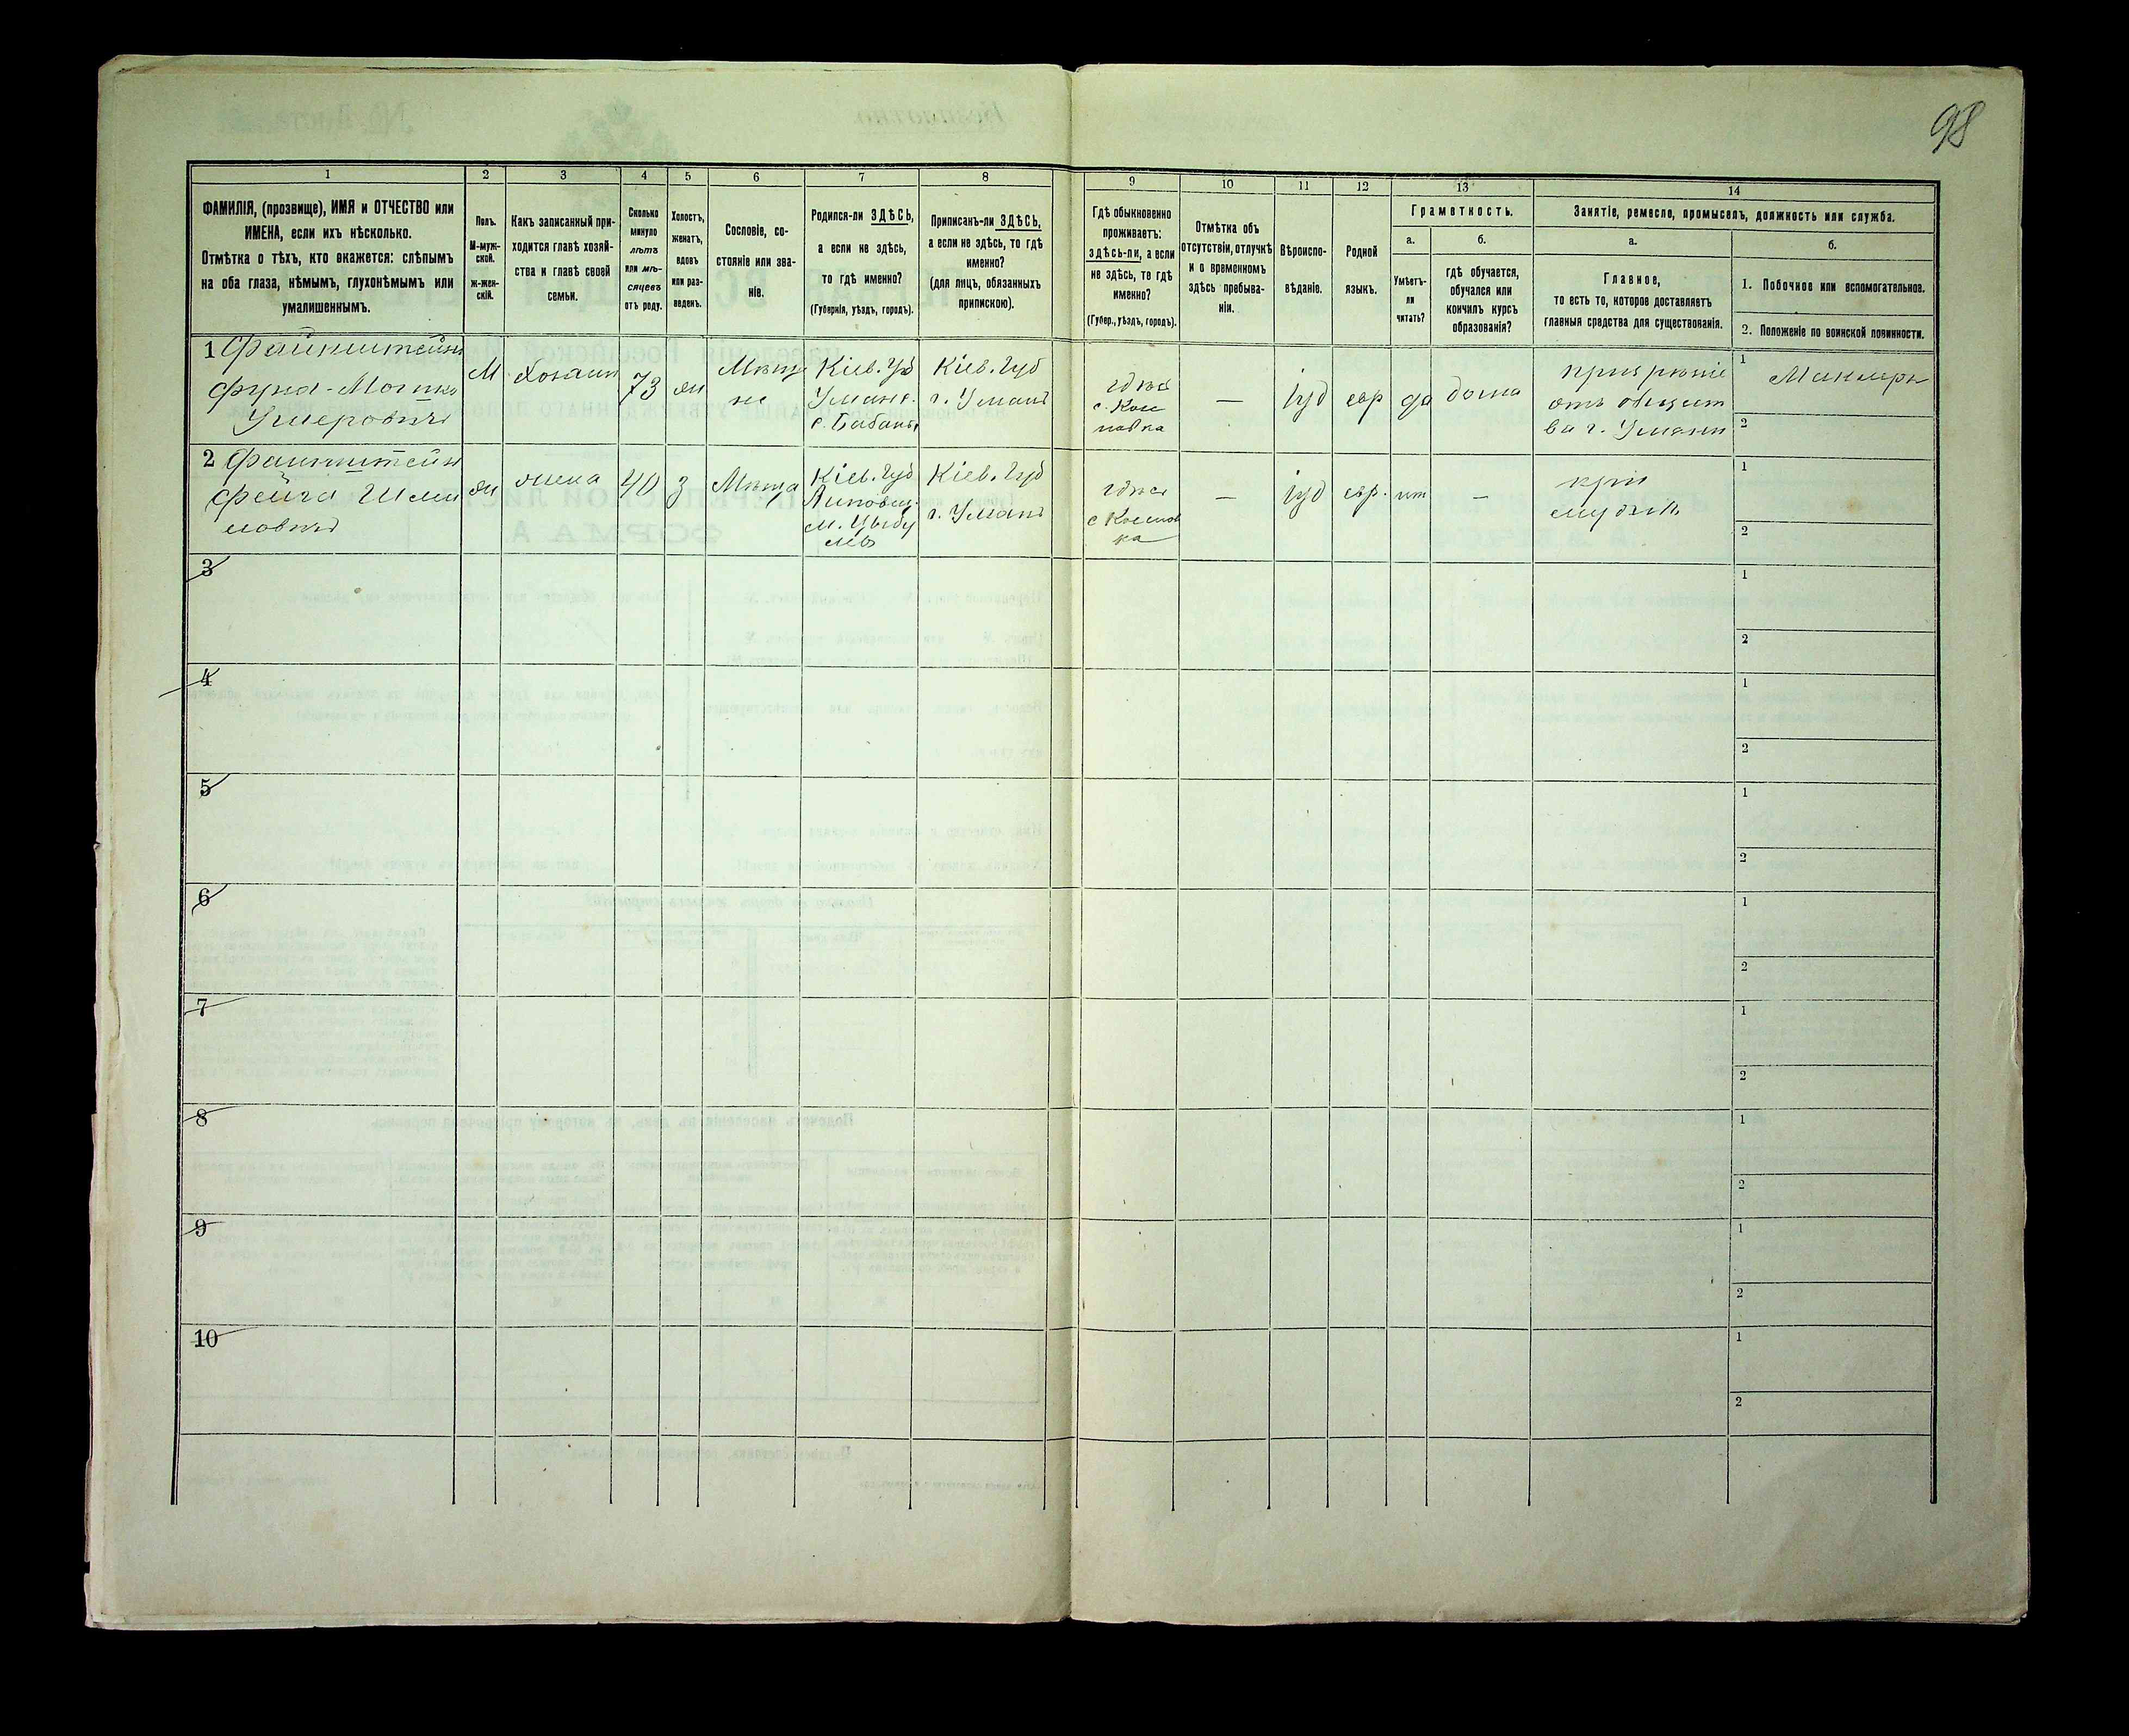 98
1
2
3
4
5
6
7
8
9
10
11
12
13
14
ФАМИЛІЯ, (прозвище), ИМЯ и ОТЧЕСТВО или
ИМЕНА, если ихъ нѣсколько.
Отмѣтка о тѣхъ, кто окажется: слѣпымъ
на оба глаза, нѣмымъ, глухонѣмымъ или
умалишеннымъ.
Полъ.
М-муж-
ской.
ж-жен-
скій.
Какъ записанный при-
ходится главѣ хозяй-
ства и главѣ своей
семьи.
Сколько
минуло
лѣтъ
или мѣ-
сяцевъ
отъ роду.
Холостъ,
женатъ,
вдовъ
или раз-
веденъ.
Сословіе, со-
стояніе или зва-
ніе.
Родился-ли ЗДѢСЬ,
а если не здѣсь,
то гдѣ именно?
(Губернія, уѣздъ, городъ).
Приписанъ-ли ЗДѢСЬ,
а если не здѣсь, то гдѣ
именно?
(для лицъ, обязанныхъ
припискою).
Гдѣ обыкновенно
проживаетъ:
здѣсь-ли, а если
не здѣсь, то гдѣ
именно?
(Губер., уѣздъ, городъ).
Отмѣтка объ
отсутствіи, отлучкѣ
и о временномъ
здѣсь пребыва-
ніи.
Вѣроиспо-
вѣданіе.
Родной
языкъ.
Грамотность.
а.
Умѣетъ-
ли
читать?
б.
гдѣ обучается,
обучался или
кончилъ курсъ
образованія?
Занятіе, ремесло, промыселъ, должность или служба.
а.
Главное,
то есть то, которое доставляетъ
главныя средства для существованія.
б.
1. Побочное или вспомогательное.
2. Положеніе по воинской повинности.
1 Файнштейнъ
Мошко
М
Хозяинъ
73
жн
Мѣща
не
Кіев. Губ
Уманс.
с. Бабаны
Кіев. Губ
г. Умань
здѣсь
—
іуд
евр
да
дома
призрѣніе
отъ общест
ва г. Умани
1 Маклеръ
2
2 Файнштейнъ
Фейга
жн
жена
40
З
Мѣща
Кіев. Губ
Липовец.
м. Цыбу
левъ
Кіев. Губ
г. Умань
здѣсь
—
іуд
евр.
нѣт
—
при
мужѣ
1
2
3
1
2
4
1
2
5
1
2
6
1
2
7
1
2
8
1
2
9
1
2
10
1
2